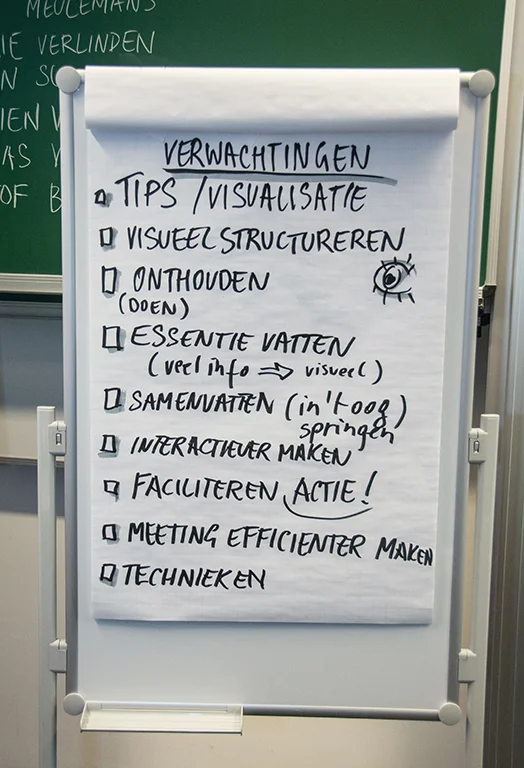 MEULEMANS
IE VERLINDEN
VERWACHTINGEN
TIPS / VISUALISATIE
VISUEEL STRUCTUREREN
ONTHOUDEN
(DOEN)
ESSENTIE VATTEN
(veel info ⇒ visueel)
SAMENVATTEN (in 't oog
springen)
INTERACTIEVER MAKEN
FACILITEREN ACTIE!
MEETING EFFICIENTER MAKEN
TECHNIEKEN